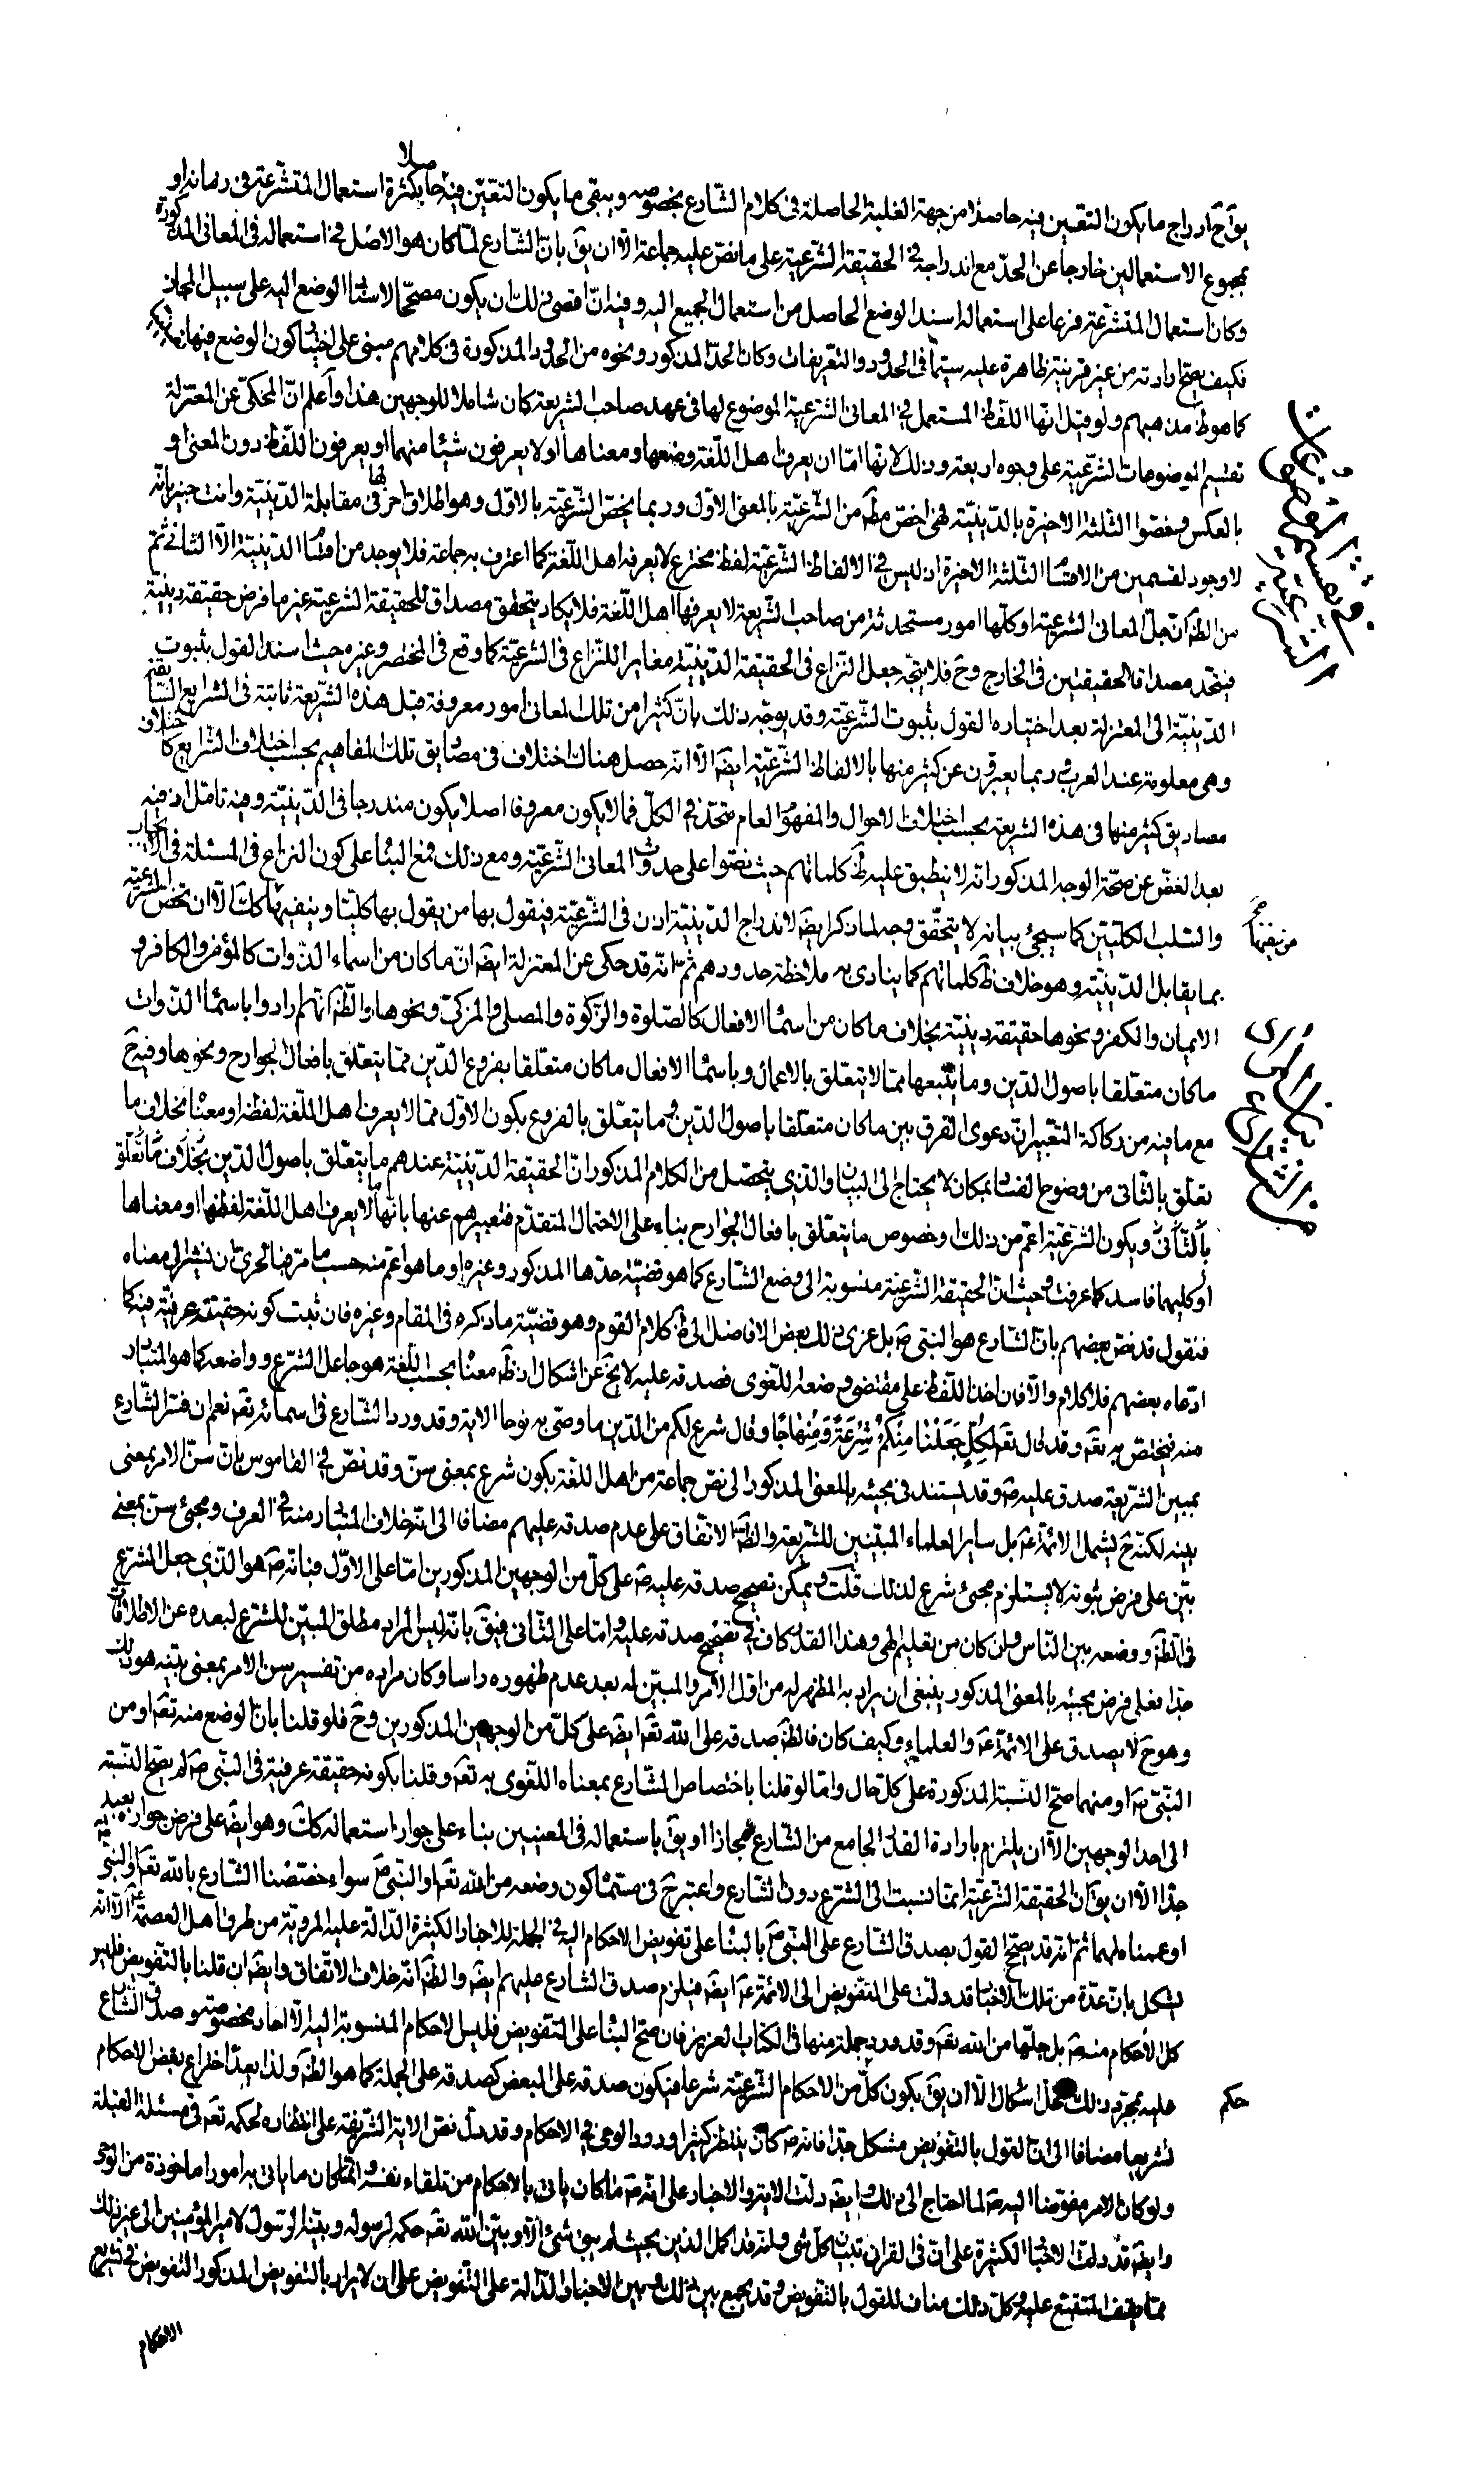 يق ح ادراج ما يكون التعين فيه حاصلا من جهة الغلبة الحاصلة فى كلام الشارع بخصوصه ويبقى ما يكون التعين فيه حاصلا بكثرة استعمال المتشرعة فى زمانه او
بمجموع الاستعمالين خارجا عن الحد مع اندراجه فى الحقيقة الشرعية على ما نص عليه جماعة الا ان يق بان الشارع لما كان هو الاصل فى استعماله فى المعانى المذكورة
وكان استعمال المتشرعة فرعا على استعماله اسند الوضع الحاصل من استعمال الجميع اليه وفيه ان اقصى ذلك ان يكون مصححا لاسناد الوضع اليه على سبيل المجاز
فكيف يصح ارادته من غير قرينة ظاهرة عليه سيما فى الحدود والتعريفات وكان الحد المذكور ونحوه من الحدود المذكورة فى كلامهم مبنى على اختيار كون الوضع فيها
كما هو ظ مذهبهم ولو قيل انها اللفظ المستعمل فى المعانى الشرعية الموضوع لها فى عهد صاحب الشريعة كان شاملا للوجهين هذا واعلم ان المحكى عن المعتزلة
تقسيم الموضوعات الشرعية على وجوه اربعة وذلك لانها اما ان يعرف اهل اللغة وضعها ومعناها او لا يعرفون شيئا منهما او يعرفون اللفظ دون المعنى او
بالعكس وخصوا الثلثة الاخيرة بالدينية فهى اخص مطم من الشرعية بالمعنى الاول وربما يخص الشرعية بالاول وهو اطلاق اخر لها فى مقابلة الدينية وانت خبير بانه
لا وجود لقسمين من الاقسام الثلثة الاخيرة اذ ليس فى الالفاظ الشرعية لفظ مخترع لا يعرفه اهل اللغة كما اعترف به جماعة فلا يوجد من اقسام الدينية الا الثانى ثم
من الظ ان جل المعانى الشرعية او كلها امور مستحدثة من صاحب الشريعة لا يعرفها اهل اللغة فلا يكاد يتحقق مصداق للحقيقة الشرعية غير ما فرض حقيقة دينية
فيتحد مصداقا الحقيقتين فى الخارج وح فلا يتجه جعل النزاع فى الحقيقة الدينية مغايرا للنزاع فى الشرعية كما وقع فى المختصر وغيره حيث اسند القول بثبوت
الدينية الى المعتزلة بعد اختياره القول بثبوت الشرعية وقد يوجه ذلك بان كثيرا من تلك المعانى امور معروفة قبل هذه الشريعة ثابتة فى الشرايع السابقة
وهى معلومة عند العرب وربما يعبرون عن كثير منها بالالفاظ الشرعية ايض الا انه حصل هناك اختلاف فى مصاديق تلك المفاهيم بحسب اختلاف الشرايع كاختلاف
مصاديق كثير منها فى هذه الشريعة بحسب اختلاف الاحوال والمفهوم العام متحد فى الكل فما لا يكون معروفا اصلا يكون مندرجا فى الدينية وفيه تامل اذ فيه
بعد الغض عن صحة الوجه المذكور انه لا ينطبق عليه ظ كلماتهم حيث نصوا على حدوث المعانى الشرعية ومع ذلك فمع البناء على كون النزاع فى المسئلة فى الايجاب
والسلب الكليين كما سيجئ بيانه لا يتحقق وجه لما ذكر ايض لاندراج الدينية اذن فى الشرعية فيقول بها من يقول بها كلية وينفيها من ينفيها كك الا ان تخص الشرعية
بما يقابل الدينية وهو خلاف ظ كلماتهم كما ينادى به ملاحظة حدودهم ثم انه قد حكى عن المعتزلة ايض ان ما كان من اسماء الذوات كالمؤمن والكافر و
الايمان والكفر ونحوها حقيقة دينية بخلاف ما كان من اسماء الافعال كالصلوة والزكوة والمصلى والمزكى ونحوها والظ انهم ارادوا باسماء الذوات
ما كان متعلقا باصول الدين وما يتبعها مما لا يتعلق بالاعمال وباسماء الافعال ما كان متعلقا بفروع الدين مما يتعلق بافعال الجوارح ونحوها وفيه ح
مع ما فيه من ركاكة التعبير ان دعوى الفرق بين ما كان متعلقا باصول الدين وما يتعلق بالفروع بكون الاول مما لا يعرف اهل اللغة لفظه او معناه بخلاف ما
تعلق بالثانى من وضوح الفساد بمكان لا يحتاج الى البيان والذى يتحصل من الكلام المذكور ان الحقيقة الدينية عندهم ما يتعلق باصول الدين بخلاف ما تعلق
بالثانى ويكون الشرعية اعم من ذلك وخصوص ما يتعلق بافعال الجوارح بناء على الاحتمال المتقدم فتعبيرهم عنها بانها ما لا يعرف اهل اللغة لفظها او معناها
او كليهما فاسد كما عرفت وحيث ان الحقيقة الشرعية منسوبة الى وضع الشارع كما هو قضية حدها المذكور وغيره او ما هو اعم منه حسب ما مر فبالحرى ان نشير الى معناه
فنقول قد نص بعضهم بان الشارع هو النبى ص بل عزى ذلك بعض الافاضل الى ظ كلام القوم وهو قضية ما ذكره فى المقام وغيره فان ثبت كونه حقيقة عرفية فيه كما
ادعاه بعضهم فلا كلام والا فان اخذ اللفظ على مقتضى وضعه اللغوى فصدقه عليه لا يخ عن اشكال اذ ظ معناه بحسب اللغة هو جاعل الشرع وواضعه كما هو المتبادر
منه فيختص به تعه وقد قال تعه لكل جعلنا منكم شرعة ومنهاجا وقال شرع لكم من الدين ما وصى به نوحا الاية وقد ورد الشارع فى اسمائه تعه نعم ان فسر الشارع
بمبين الشريعة صدق عليه ص وقد يستند فى مجيئه بالمعنى المذكور الى نص جماعة من اهل اللغة بكون شرع بمعنى سن وقد نص فى القاموس بان سن الامر بمعنى
بينه لكنه ح يشمل الائمة ع بل ساير العلماء المبينين للشريعة والظ الاتفاق على عدم صدقه عليهم مضافا الى انه خلاف المتبادر منه فى العرف ومجئ سن بمعنى
بين على فرض ثبوته لا يستلزم مجئ شرع لذلك قلت ويمكن تصحيح صدقه عليه ص على كل من الوجهين المذكورين اما على الاول فبانه ص هو الذى جعل الشرع
فى الظ ووضعه بين الناس وان كان من تعليم الهى وهذا القدر كاف فى تصحيح صدقه عليه واما على الثانى فيق بانه ليس المراد مطلق المبين للشرع لبعده عن الاطلاقات
جدا فعلى فرض مجيئه بالمعنى المذكور ينبغى ان يراد به المظهر له من اول الامر والمبين له بعد عدم ظهوره راسا وكان مراده من تفسير سن الامر بمعنى بينه هو ذلك
وهو ح لا يصدق على الائمة ع والعلماء وكيف كان فالظ صدقه على الله تعه ايض على كل من الوجهين المذكورين وح فلو قلنا بان الوضع منه تعه او من
النبى ص او منهما صح النسبة المذكورة على كل حال واما لو قلنا باختصاص الشارع بمعناه اللغوى به تعه وقلنا بكونه حقيقة عرفية فى النبى ص لم يصح النسبة
الى احد الوجهين الا ان يلتزم بارادة القدر الجامع من الشارع مجازا او يق باستعماله فى المعنيين بناء على جواز استعماله كك وهو ايض على فرض جوازه بعيد
جدا الا ان يق ان الحقيقة الشرعية انما نسبت الى الشرع دون الشارع واعتبر ح فى مسماه كون وضعه من الله تعه او النبى ص سواء خصصنا الشارع بالله تعه او النبى ص
او عممناه لهما ثم انه قد يصح القول بصدق الشارع على النبى ص بالبناء على تفويض الاحكام اليه فى الجملة للاخبار الكثيرة الدالة عليه المروية من طرق اهل العصمة ع الا انه
يشكل بان عدة من تلك الاخبار قد دلت على التفويض الى الائمة ع ايض فيلزم صدق الشارع عليهم ايض والظ انه خلاف الاتفاق وايض ان قلنا بالتفويض فليس
كل الاحكام منه ص بل جلها من الله تعه وقد ورد جملة منها فى الكتاب العزيز فان صح البناء على التفويض فليس الاحكام المنسوبة اليه الا احاد مخصوصة وصدق الشارع
عليه بمجرد ذلك محل اشكال الا ان يق بكون كل من الاحكام الشرعية شرعا فيكون صدقه على البعض كصدقه على الجملة كما هو الظ ولذا يعد اختراع بعض الاحكام
تشريعا مضافا الى ان القول بالتفويض مشكل جدا فانه ص كان ينتظر كثيرا ورود الوحى فى الاحكام وقد دل نص الاية الشريفة على انتظاره لحكمه تعه فى مسئلة القبلة
ولو كان الامر مفوضا اليه ص لما احتاج الى ذلك وايض دلت الاية والاخبار على انه ص ما كان ياتى بالاحكام من تلقاء نفسه وانما كان ما ياتى به امورا ماخوذة من الوحى
وايض قد دلت الاخبار الكثيرة على ان فى القران تبيان كل شئ وانه قد اكمل الدين بحيث لم يبق شئ الا وبين الله تعه حكمه لرسوله وبينه الرسول لامير المؤمنين الى غير ذلك
مما يقف المتتبع عليه وكل ذلك مناف للقول بالتفويض وقد يجمع بين ذلك وبين الاخبار الدالة على التفويض على ان لا يراد بالتفويض المذكور التفويض فى تشريع
الاحكام
فى تقسيم الموضوعات الشرعية
من ينفيها
صح
حكم